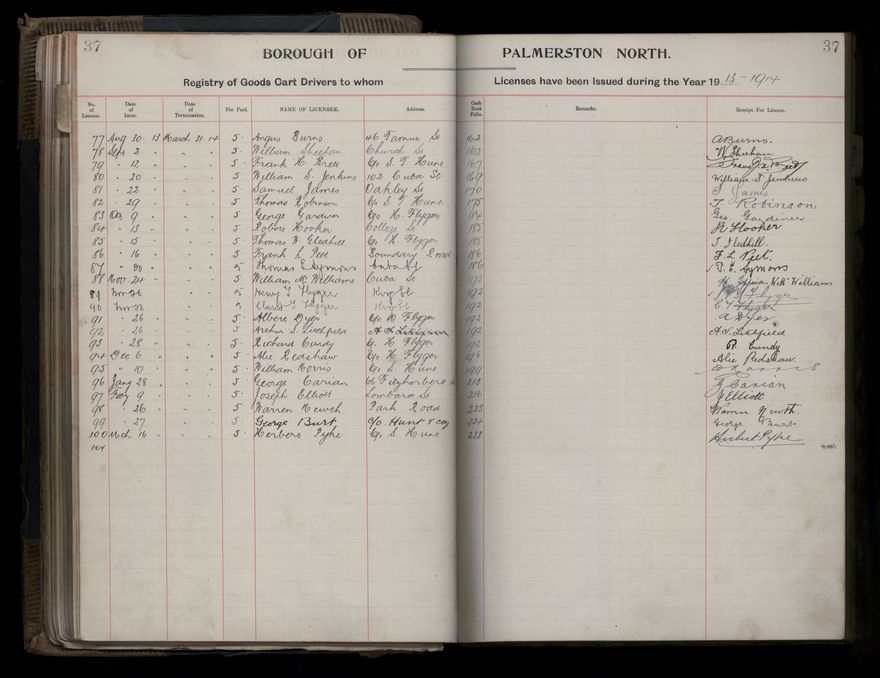 37 37
BOROUGH OF PALMERSTON NORTH.
Registry of Goods Cart Drivers to whom Licenses have been Issued during the Year 1913-1914
No. of License. Date of Issue. Date of Termination. Fee Paid. NAME OF LICENSEE. Address. Cash Book Folio. Remarks. Receipt For License.
77 Aug 30 13 March 31 14 5 Angus Burns 46 Taonui St 162 A Burns.
78 Sept 2 " " " 5 William Sheehan Church St 162 W Sheehan
79 " 12 " " " 5 Frank H. c/o S. T. Hunt 167
80 " 20 " " " 5 William S. Jenkins 102 Cuba St 169 William S Jenkins
81 " 22 " " " 5 Samuel James Oakley St 170 S James
82 " 29 " " " 5 Thomas Robinson c/o S. T. Hunt 175 T. Robinson
83 Oct 9 " " " 5 George Gardiner c/o H. Flyger 184 Geo. Gardiner
84 " 13 " " " 5 Robert Hooker College St 185 R Hooker
85 " 15 " " " 5 Thomas W. Gledhill c/o H. Flyger 185
86 " 16 " " " 5 Frank L Peet Boundary Road 186 F L Peet.
87 " 20 " " " 5 Thomas E Symons 186 T. E. Symons
88 Nov 24 " " " 5 William Mc Williams Cuba St 192 Wm McWilliams
89 Nov 26 " " " 5 Henry T Flyger 192 Flyger
90 Nov 26 " " " 5 Flyger 192 Flyger
91 " 26 " " " 5 Albert Dyer c/o H Flyger 192 A Dyer
92 " 26 " " " 5 Arthur S. Litchfield 192 A. S. Litchfield
93 " 28 " " " 5 Richard Cundy c/o H. Flyger 192 R. Cundy
94 Dec 6 " " " 5 Alic Redshaw c/o H. Flyger 196 Alic Redshaw.
95 " 10 " " " 5 William Norris c/o S. Hunt 199
96 Jany 28 " " " 5 George Carian 66 Fitzherbert St 213 G Carian
97 Feby 9 " " " 5 Joseph Elliott Lombard St 216 J Elliott
98 " 26 " " " 5 Warren Newth Park Road 223 Warren Newth.
99 " 27 " " " 5 George Burt c/o Hunt & Coy 224 George Burt
100 Mch 16 " " " 5 Herbert Pyke c/o S. Hunt 233 Herbert Pyke
101